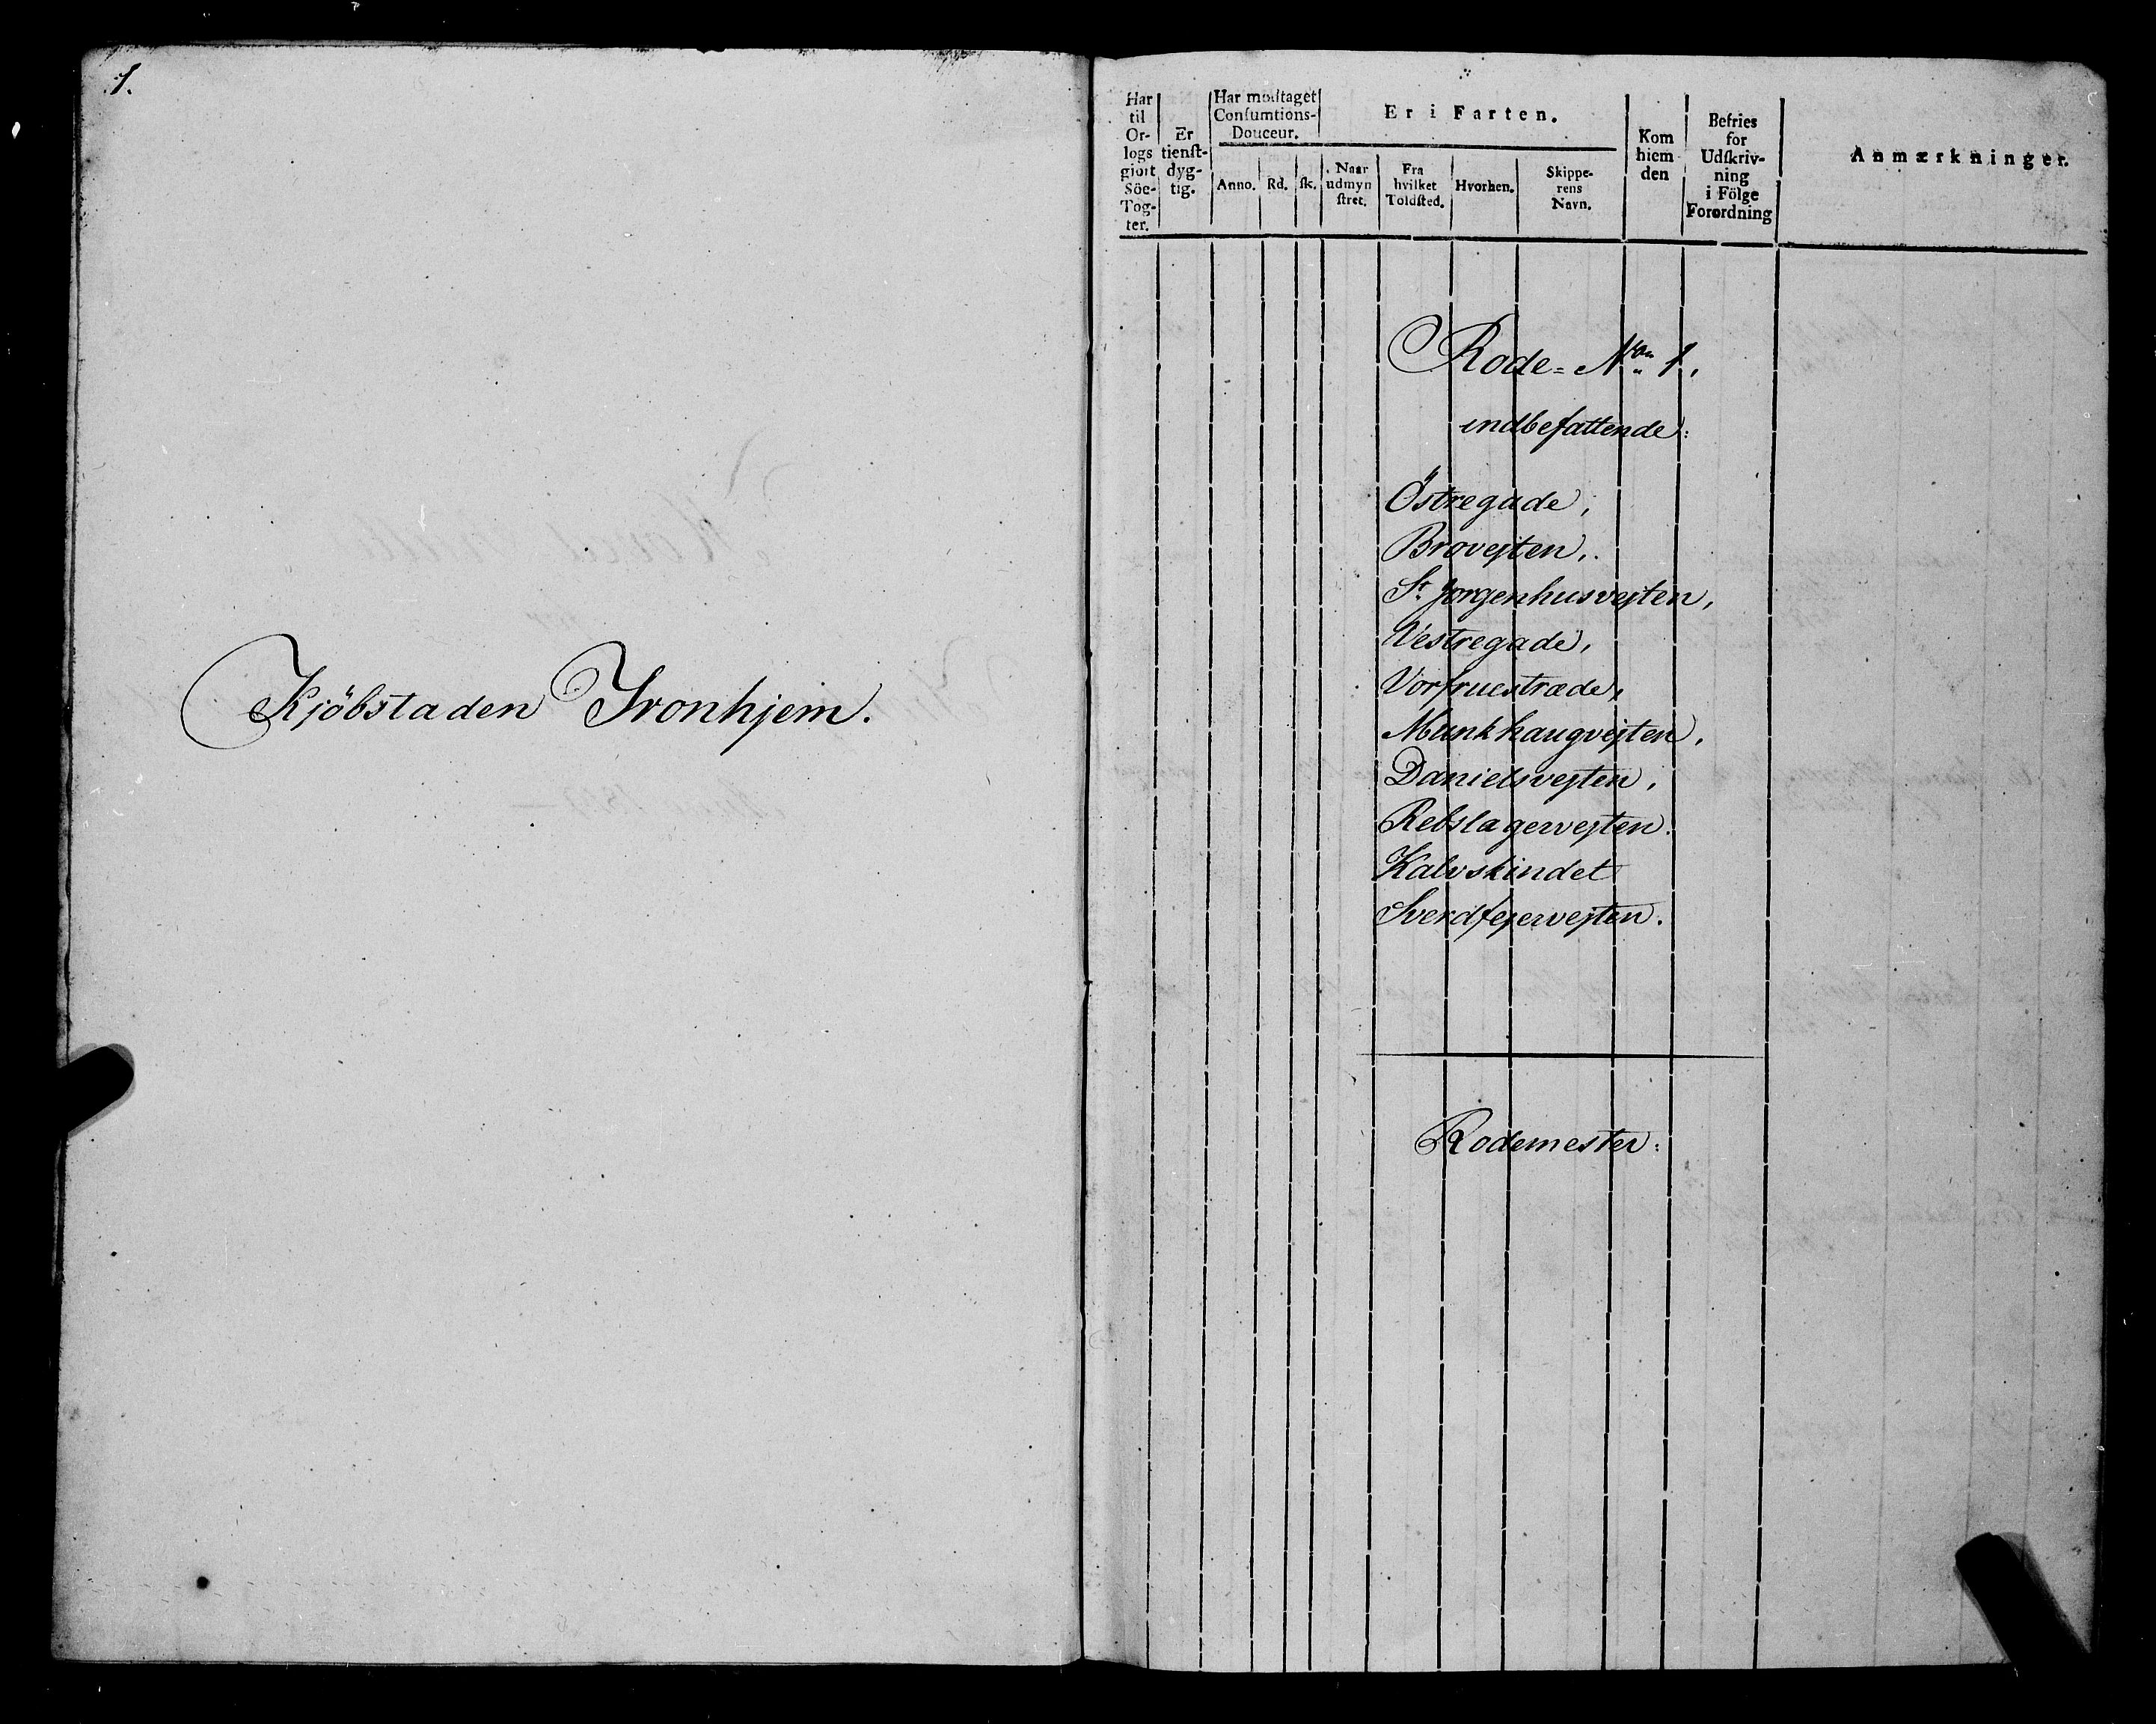 1.
Kjöbstaden Tronhjem.
Har til Orlogs giort Söe-Togter.
Er tienst-dyg-tig.
Har modtaget Consumtions-Douceur.
Anno. Rd. sk.
Er i Farten.
Naar udmynstret.
Fra hvilket Toldsted.
Hvorhen.
Skipperens Navn.
Kom hiem den
Befries for Udskrivning i Fölge Forordning
Anmærkninger.
Rode= No. 1.
indbefattende:
Östregade,
Brovejten,
St. Jörgenhusvejten,
Vestregade,
Vorfruestræde,
Munkhaugvejten,
Danielsvejten,
Rebslagervejten.
Kalvskindet
Sverdfejervejten.
Rodemester: